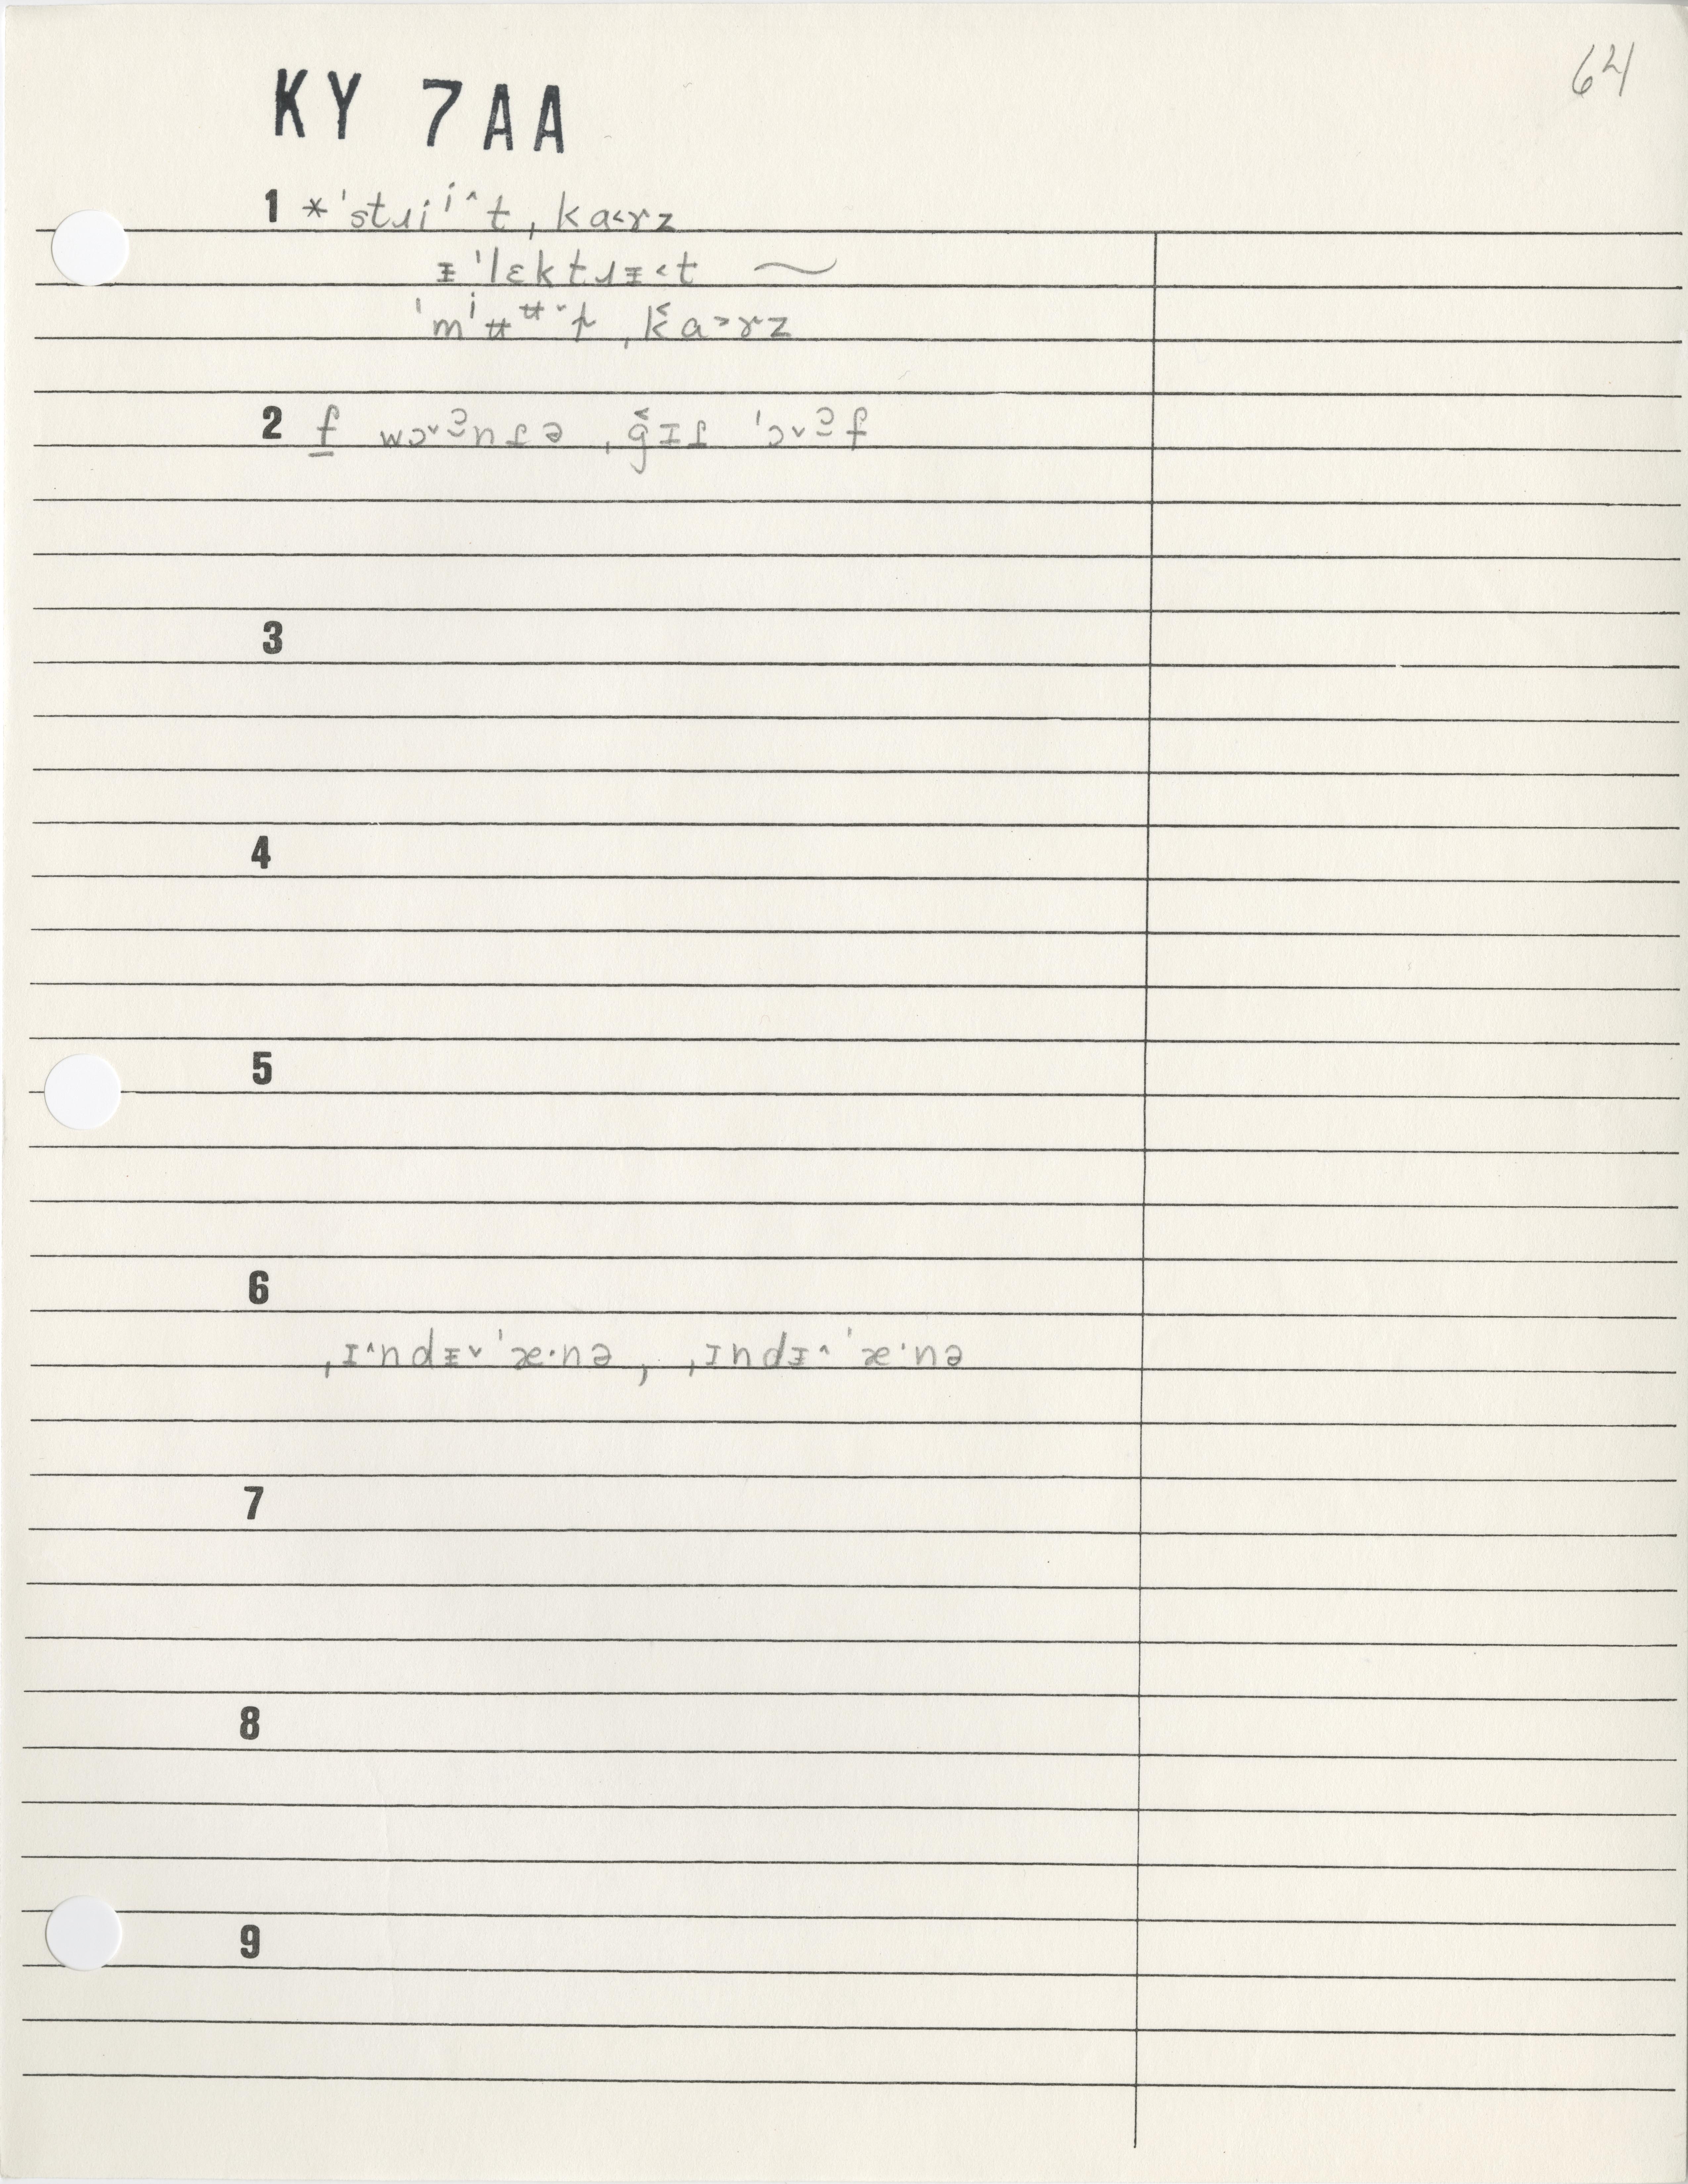 64
KY 7AA
1 *ˈstɹiiˆt ˌka˂ɤz
ᵻˈlɛktɹᵻ˂t ~
ˈmⁱʉʉ˅t ˌk̬a˃ɤz
2 f wɔ˅ɔ̃nɾə ˌg̬ɪɾ ˈɔ˅ɔ̃f
3
4
5
6
ˌɪˆndᵻ˅ˈæ·nə , ˌɪndᵻˆˈæ·nə
7
8
9